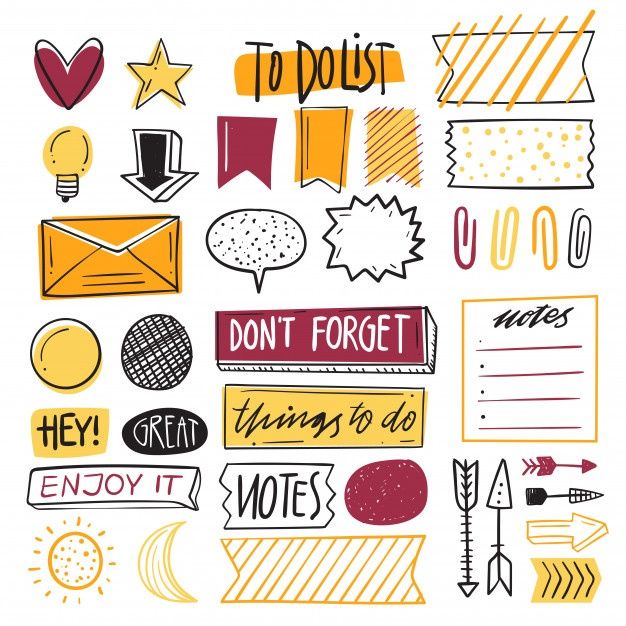 TO DO LIST
DON'T FORGET
notes
HEY!
GREAT
things to do
ENJOY IT
NOTES